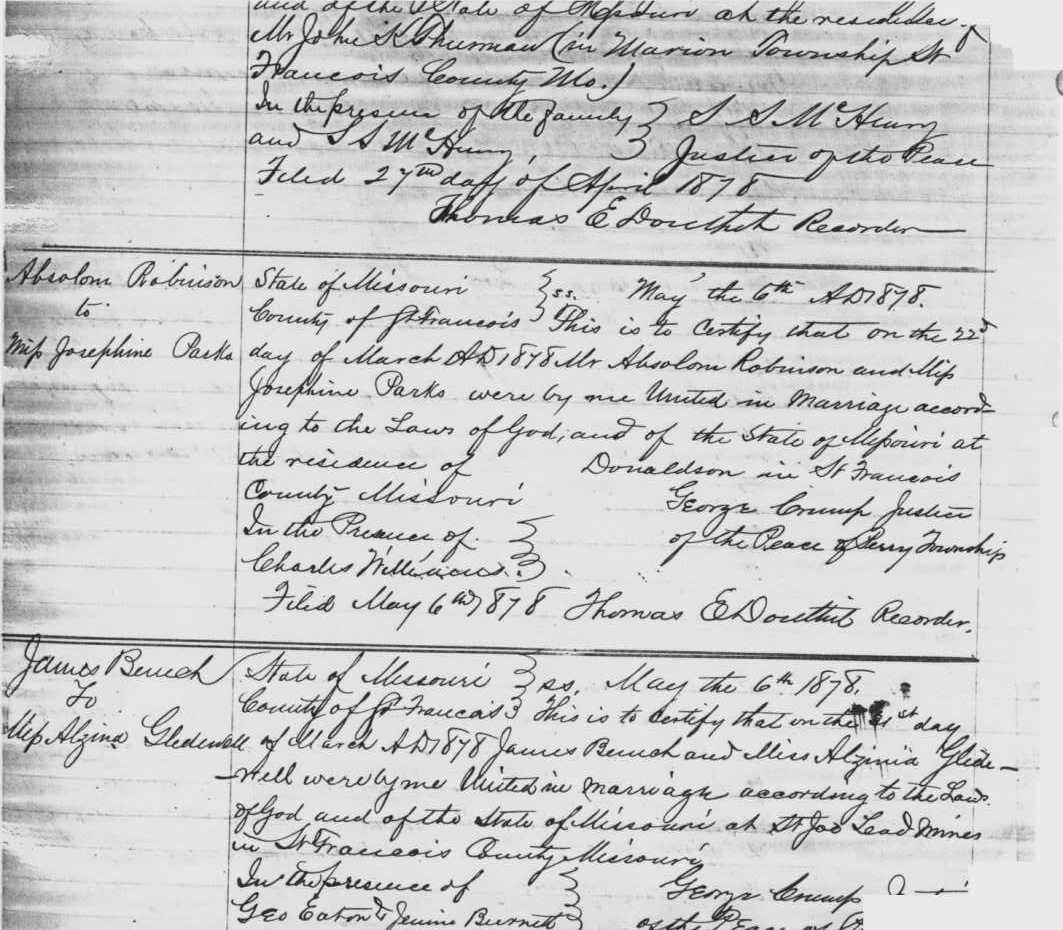 and of the State of Missouri at the residence of
Mr John K Thurman (in Marion Township St
Francois County Mo.)
In the presence of the family } S. S. McHenry
and S S McHenry } Justice of the Peace
Filed 27th day of April 1878
Thomas E Douthit Recorder
Absolom Robinson State of Missouri } ss. May the 6th AD 1878.
to County of St Francois } This is to Certify that on the 22d
Miss Josephine Parks day of March AD 1878 Mr Absolom Robinson and Miss
Josephine Parks were by me United in Marriage accord-
ing to the Laws of God, and of the State of Missouri at
the risidence of Donaldson in St Francois
County Missouri George Crump Justice
In the Presence of } of the Peace of Perry Township
Charles Williams. }
Filed May 6th 1878 Thomas E Douthit Recorder.
James Bench State of Missouri } ss. May the 6th 1878.
To County of St Francois } This is to Certify that on the 31st day
Miss Alzina Gledewell of March AD 1878 James Bench and Miss Alzinia Glide-
-well were by me United in marriage according to the Laws
of God and of the State of Missouri at St Joe Lead Mines
in St Francois County Missouri
In the presence of } George Crump
Geo Eaton & Jennie Burnett } of the Peace of